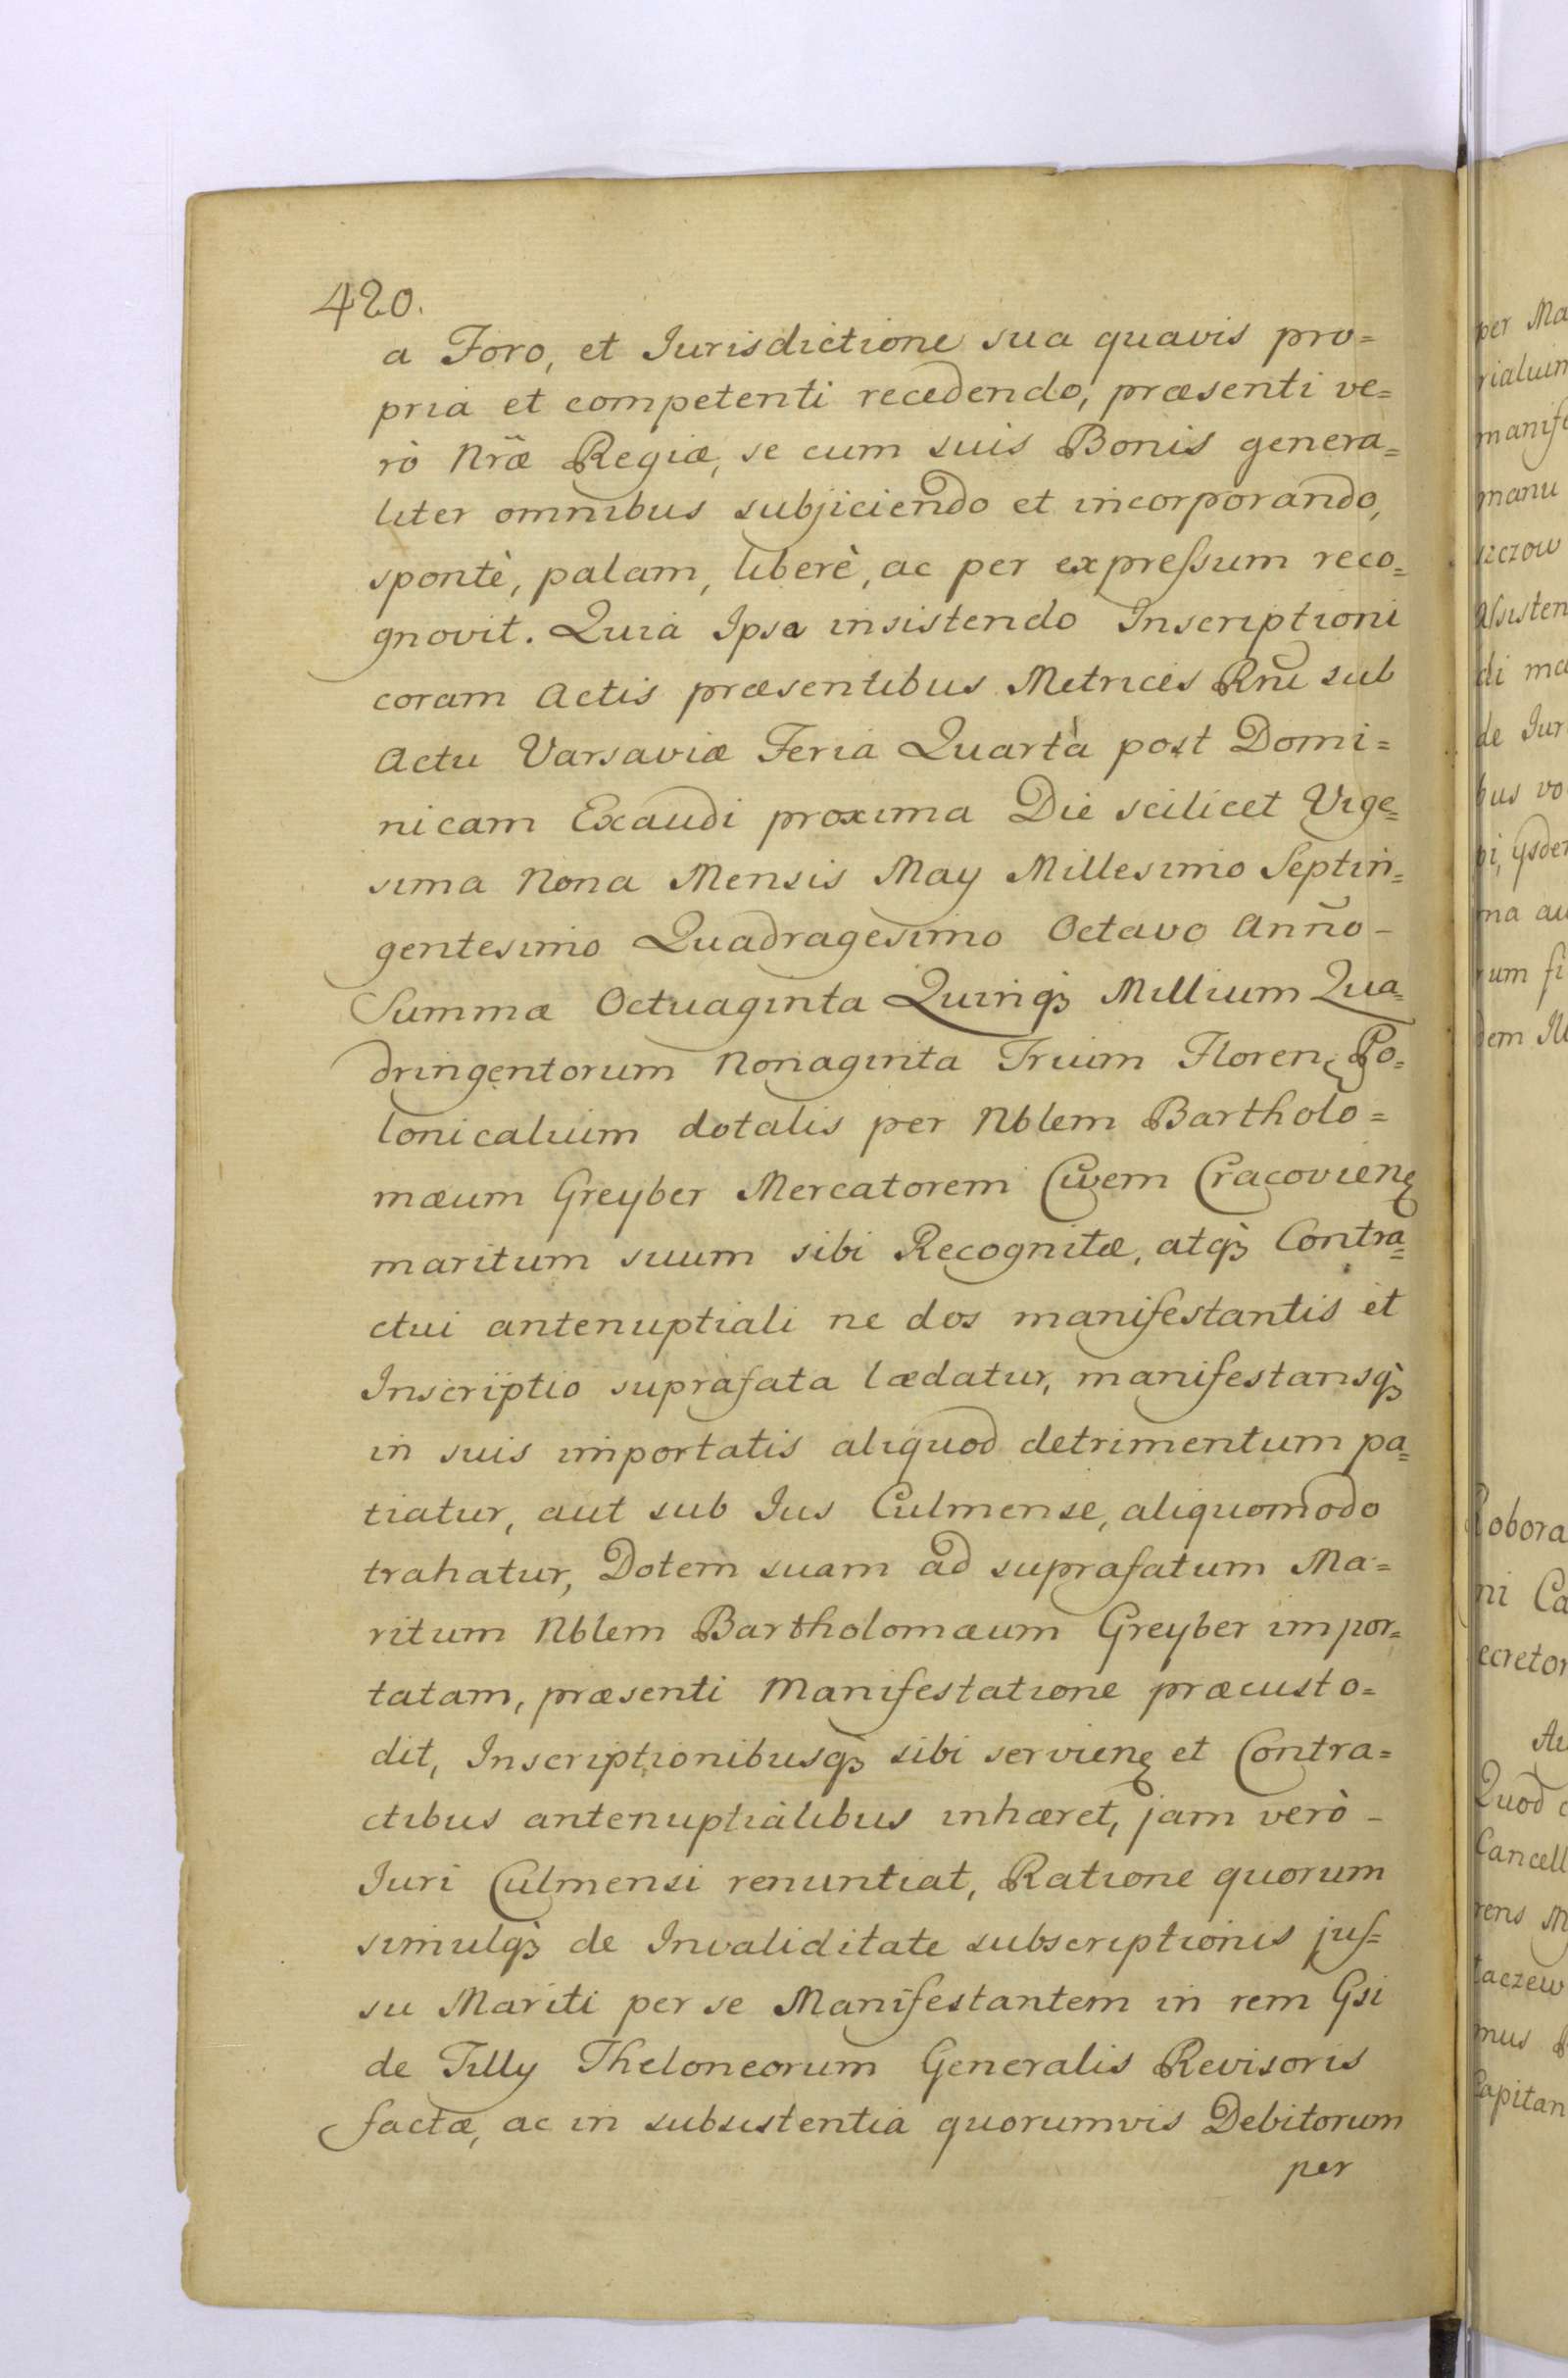 420.
a Foro, et Iurisdictione sua quavis pro=
pria et competenti recedendo, præsenti ve=
rò Nr̃æ Regiæ, se cum suis Bonis genera=
liter omnibus subjiciendo et incorporando,
spontè, palam, liberè, ac per expreſsum reco=
gnovit. Quia Ipsa insistendo Inscriptioni
coram Actis præsentibus Metrices Rni sub
Actu Varsaviæ Feria Quartà post Domi=
nicam Exaudi proxima Die scilicet Vige=
sima Nona Mensis May Millesimo Septin=
gentesimo Quadragesimo Octavo Anño –
Summæ Octuaginta Quinqꝫ Millium Qua=
dringentorum Nonaginta Trium Floren Po=
lonicalium dotalis per Nblem Bartholo=
mæum Greyber Mercatorem Civem Cracovien
maritum suum sibi Recognitæ, atqꝫ Contra=
ctui antenuptiali ne dos manifestantis et
Inscriptio suprafata lædatur, manifestansqꝫ
in suis importatis aliquod detrimentum pa=
tiatur, aut sub Ius Culmense, aliquomodo
trahatur, Dotem suam ad suprafatum Ma=
ritum Nblem Bartholomæum Greyber impor=
tatam, præsenti Manifestatione præcusto=
dit, Inscriptionibusqꝫ sibi servien et Contra=
ctibus antenuptialibus inhæret, jam verò –
Iuri Culmensi renuntiat, Ratione quorum
simulqꝫ de Invaliditate subscriptionis juſ=
su Mariti per se Manifestantem in rem Gsi
de Tilly Theloneorum Generalis Revisoris
factæ, ac in subsistentia quorumvis Debitorum
per
per Ma
manife
manu
szczow
di ma
de Iur
bus vo
ma au
um fi
Robora
ni Ca
ecretor
Quod
Cancell
rens M
taczew
mus
Capitan